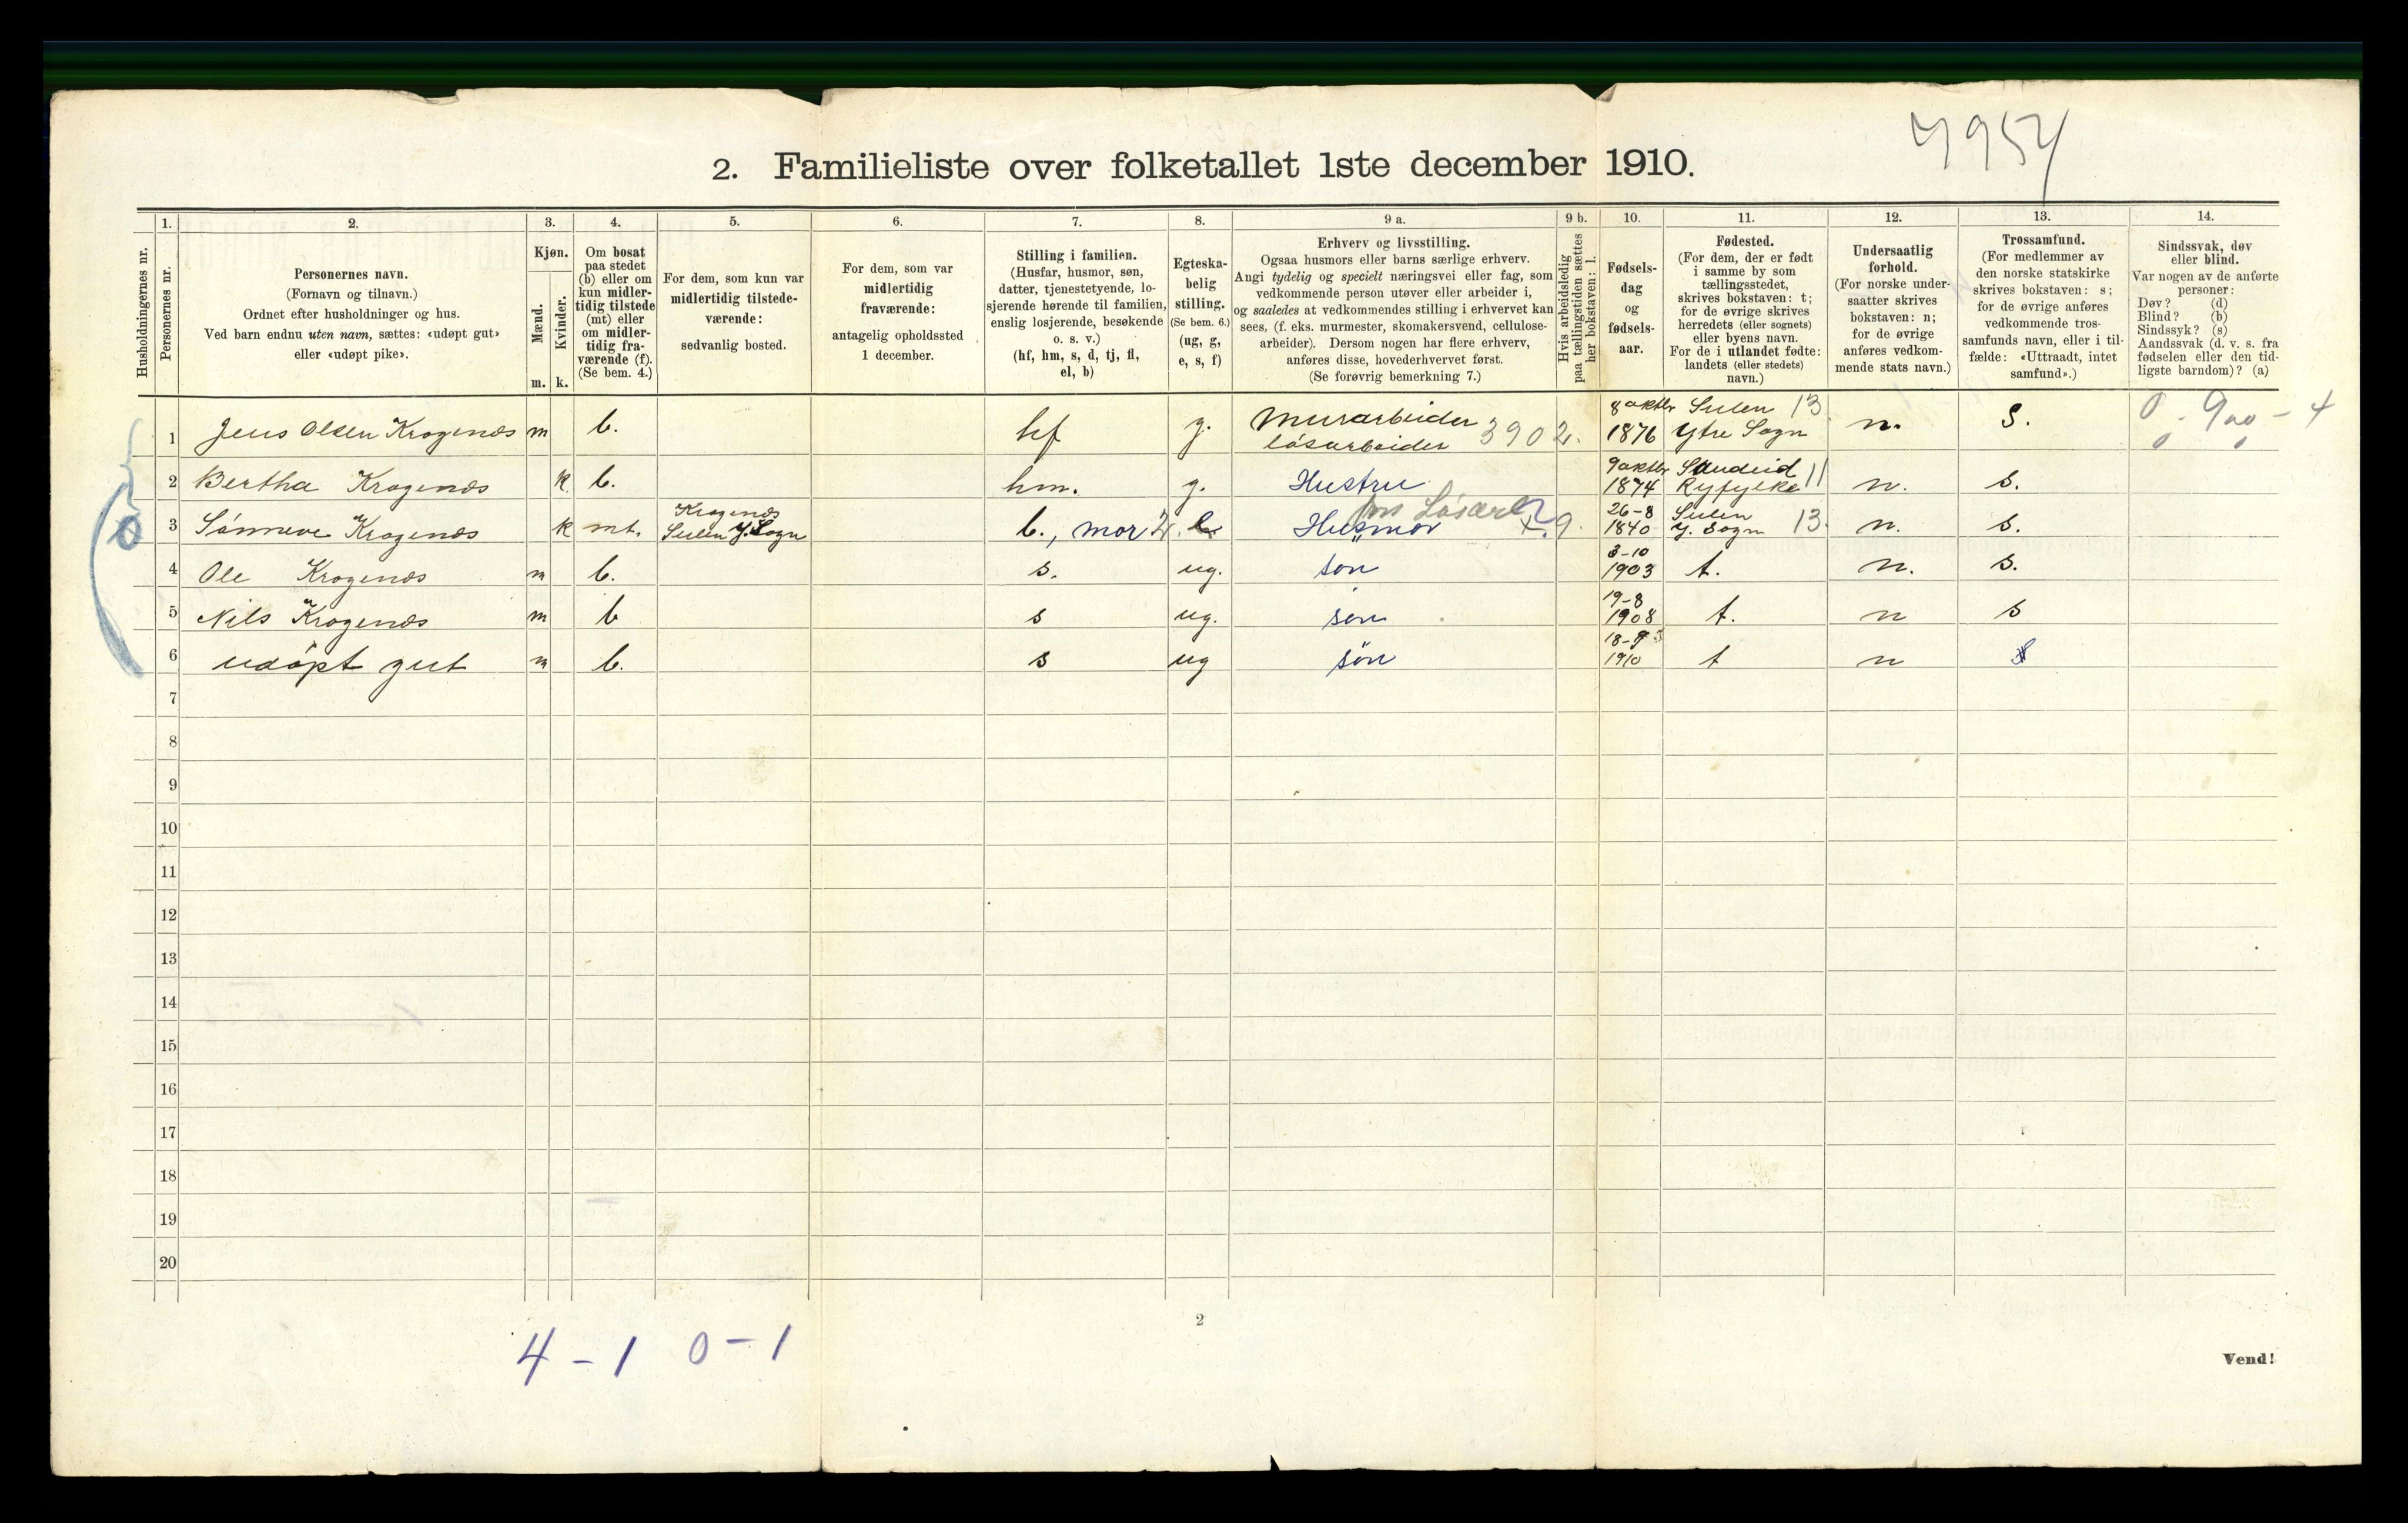 4954
2. Familieliste over folketallet 1ste december 1910.
Husholdningernes nr.
1. Personernes nr.
2. Personernes navn.
(Fornavn og tilnavn.)
Ordnet efter husholdninger og hus.
Ved barn endnu uten navn, sættes: «udøpt gut»
eller «udøpt pike».
3. Kjøn.
Mænd. Kvinder.
m. k.
4. Om bosat
paa stedet
(b) eller om
kun midler-
tidig tilstede
(mt) eller
om midler-
tidig fra-
værende (f).
(Se bem. 4.)
5. For dem, som kun var
midlertidig tilstede-
værende:
sedvanlig bosted.
6. For dem, som var
midlertidig
fraværende:
antagelig opholdssted
1 december.
7. Stilling i familien.
(Husfar, husmor, søn,
datter, tjenestetyende, lo-
sjerende hørende til familien,
enslig losjerende, besøkende
o. s. v.)
(hf, hm, s, d, tj, fl,
el, b)
8. Egteska-
belig
stilling.
(Se bem. 6.)
(ug, g,
e, s, f)
9 a. Erhverv og livsstilling.
Ogsaa husmors eller barns særlige erhverv.
Angi tydelig og specielt næringsvei eller fag, som
vedkommende person utøver eller arbeider i,
og saaledes at vedkommendes stilling i erhvervet kan
sees, (f. eks. murmester, skomakersvend, cellulose-
arbeider). Dersom nogen har flere erhverv,
anføres disse, hovederhvervet først.
(Se forøvrig bemerkning 7.)
9 b. Hvis arbeidsledig
paa tællingstiden sættes
her bokstaven: l.
10. Fødsels-
dag
og
fødsels-
aar.
11. Fødested.
(For dem, der er født
i samme by som
tællingsstedet,
skrives bokstaven: t;
for de øvrige skrives
herredets (eller sognets)
eller byens navn.
For de i utlandet fødte:
landets (eller stedets)
navn.)
12. Undersaatlig
forhold.
(For norske under-
saatter skrives
bokstaven: n;
for de øvrige
anføres vedkom-
mende stats navn.)
13. Trossamfund.
(For medlemmer av
den norske statskirke
skrives bokstaven: s;
for de øvrige anføres
vedkommende tros-
samfunds navn, eller i til-
fælde: «Uttraadt, intet
samfund».)
14. Sindssvak, døv
eller blind.
Var nogen av de anførte
personer:
Døv? (d)
Blind? (b)
Sindssyk? (s)
Aandssvak (d. v. s. fra
fødselen eller den tid-
ligste barndom)? (a)
1 Jens Olsen Krogenæs m b. hf g. Murarbeider løsarbeider 3902. 8 oktbr 1876 Sulen 13 Ytre Sogn n. S. 0. 900 - 4
2 Bertha Krogenæs k. b. hm. g. Hustru 9 oktbr 1874 Sandeid 11 Ryfylke n. s.
3 Sønneve Krogenæs k mt. Krogenæs Sulen Y. Sogn b., mor Husmor x.9. 26-8 1840 Sulen Y. Sogn 13. n. s.
4 Ole Krogenæs m b. s. ug. søn 3-10 1903 t. n. s.
5 Nils Krogenæs m b s ug. søn 19-8 1908 t. n s
6 udøpt gut m b. s ug søn 18-9 1910 t n s
7
8
9
10
11
12
13
14
15
16
17
18
19
20
4 - 1 0 - 1
2
Vend!